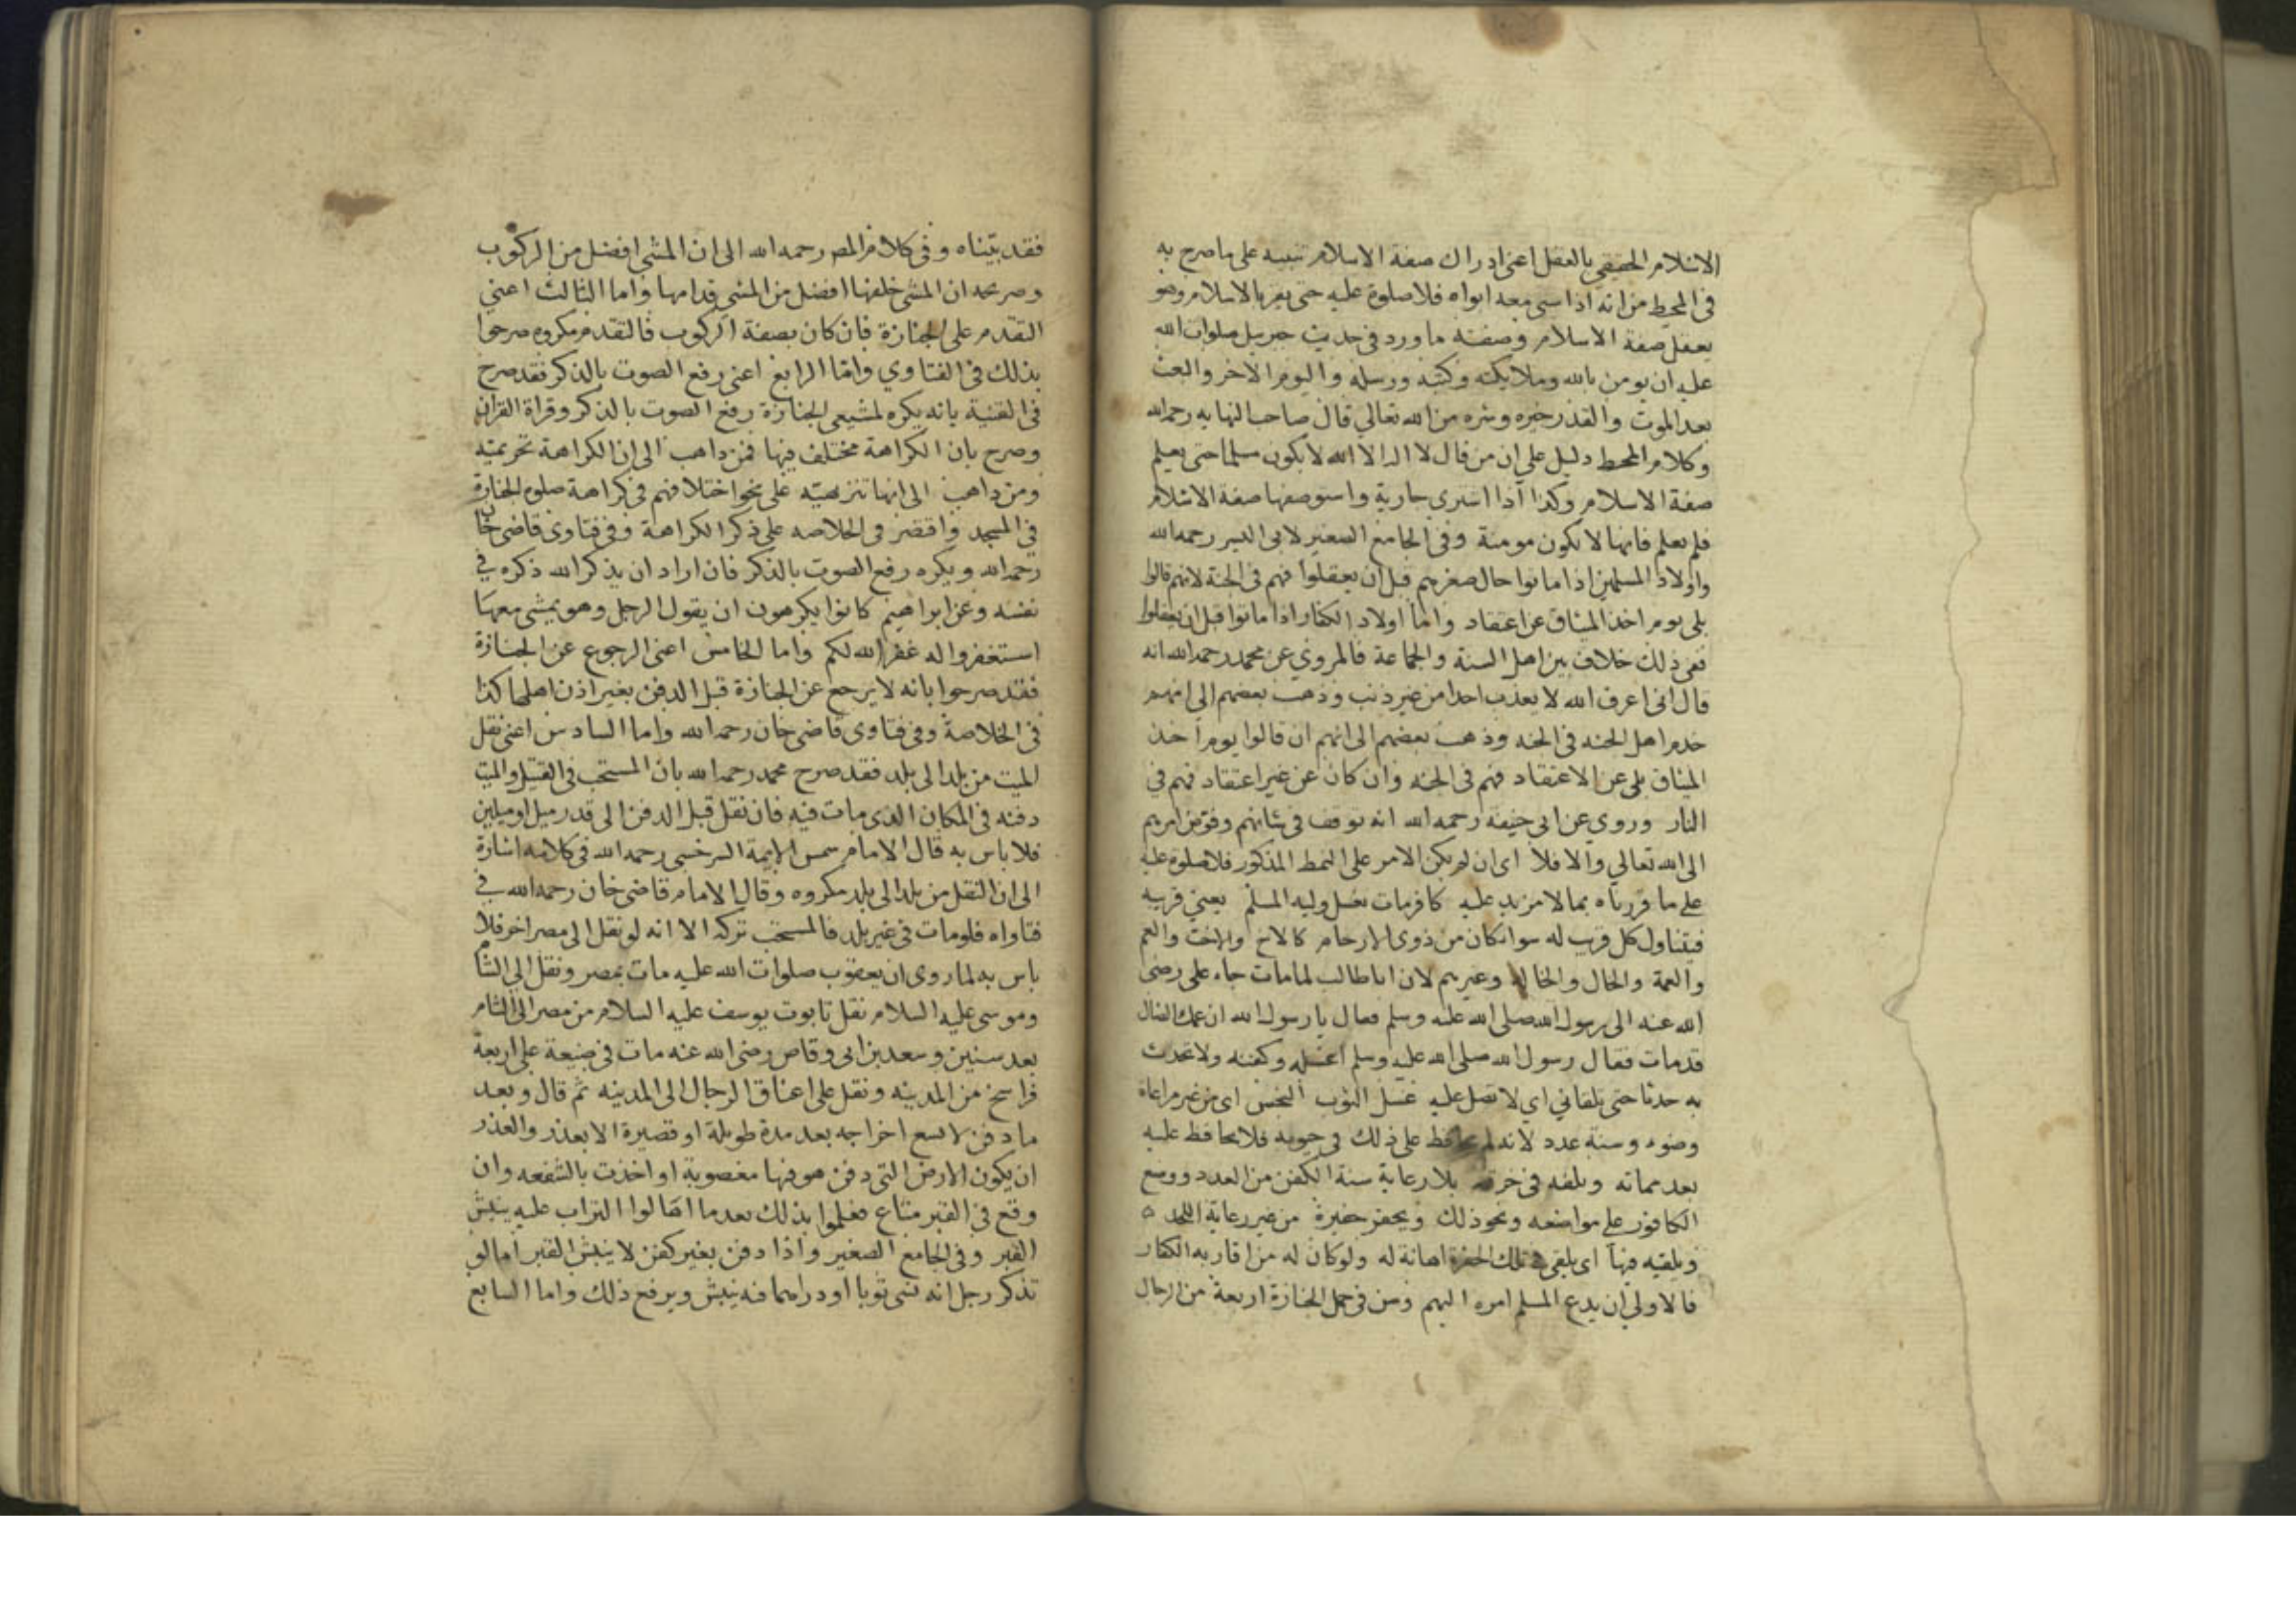 الاسلام الحقيقي بالعقل اعنى ادراك صفة الاسلام تنبيه على ما صرح به
فى المحيط من انه اذا سبى معه ابواه فلا صلوة عليه حتى يقر بالاسلام وهو
يعقل صفة الاسلام وصفته ما ورد فى حديث جبريل صلوات الله
عليه ان يومن بالله وملايكته وكتبه ورسله واليوم الاخر والبعث
بعد الموت والقدر خيره وشره من الله تعالي قال صاحب النهايه رحمه الله
وكلام المحيط دليل على ان من قال لا اله الا الله لا يكون مسلما حتى يعلم
صفة الاسلام وكذا اذا اشترى جارية واستوصفها صفة الاسلام
فلم يعلم فانها لا تكون مومنة وفى الجامع الصغير لابى اليسر رحمه الله
واولاد المسلمين اذا ماتوا حال صغرهم قبل ان يعقلوا فهم فى الجنة لانهم قالوا
بلى يوم اخذ الميثاق عن اعتقاد واما اولاد الكفار اذا ماتوا قبل ان يعقلوا
ففى ذلك خلاف بين اهل السنة والجماعة فالمروي عن محمد رحمه الله انه
قال انى اعرف الله لا يعذب احدا من غير ذنب وذهب بعضهم الى انهم
خدم اهل الجنه فى الجنه وذهب بعضهم الى انهم ان قالوا يوم اخذ
الميثاق بلى عن الاعتقاد فهم فى الجنه وان كان عن غير اعتقاد فهم في
النار وروي عن ابى حنيفة رحمه الله انه توقف فى شانهم وفوض امرهم
الى الله تعالي والا فلا اى ان لم يكن الامر على النمط المذكور فلا صلوة عليه
على ما قررناه بما لا مزيد عليه كافر مات يغسل وليه المسلم يعني قريبه
فيتناول كل قريب له سوا كان من ذوى الارحام كالاخ والاخت والعم
والعمة والخال والخالة وغيرهم لان ابا طالب لما مات جاء على رضى
الله عنه الى رسول الله صلى الله عليه وسلم فقال يا رسول الله ان عمك الضال
قد مات فقال رسول الله صلى الله عليه وسلم اغسله وكفنه ولا تحدث
به حدثا حتى تلقاني اي لا تصل عليه غسل الثوب النجس اى من غير مراعاة
وضوء وسنة عدد لانه لم يحافظ على ذلك فى حيوته فلا يحافظ عليه
بعد مماته ويلفه فى خرقة بلا رعاية سنة الكفن من العدد ووضع
الكافور على مواضعه ونحو ذلك ويحفر حفيرة من غير رعاية اللحد
ويلقيه فيها اى يلقى فى تلك الحفرة اهانة له ولو كان له من اقاربه الكفار
فالاولى ان يدع المسلم امره اليهم وسن فى حمل الجنازة اربعة من الرجال
فقد بيناه وفى كلام المص رحمه الله الى ان المشى افضل من الركوب
وصر محمد ان المشى خلفها افضل من المشى قدامها واما الثالث اعنى
التقدم على الجنازة فان كان بصفة الركوب فالتقدم مكروه صرحوا
بذلك فى الفتاوي واما الرابع اعنى رفع الصوت بالذكر فقد صرح
فى القنية بانه يكره لمشيعى الجنازة رفع الصوت بالذكر وقراة القران
وصرح بان الكراهة مختلف فيها فمن ذاهب الى ان الكراهة تحريميّة
ومن ذاهب الى انها تنزيهيّة على نحو اختلافهم فى كراهة صلوة الجنازة
فى المسجد واقتصر فى الخلاصه على ذكر الكراهة وفى فتاوى قاضى خان
رحمه الله ويكره رفع الصوت بالذكر فان اراد ان يذكر الله ذكره في
نفسه وعن ابراهيم كانوا يكرهون ان يقول الرجل وهو يمشى معها
استغفروا له غفر الله لكم واما الخامس اعنى الرجوع عن الجنازة
فقد صرحوا بانه لا يرجع عن الجنازة قبل الدفن بغير اذن اهلها كذا
فى الخلاصة وفى فتاوى قاضى خان رحمه الله واما السادس اعنى نقل
الميت من بلد الى بلد فقد صرح محمد رحمه الله بان المستحب فى القتيل والميت
دفنه فى المكان الذى مات فيه فان نقل قبل الدفن الى قدر ميل او ميلين
فلا باس به قال الامام شمس الايمة السرخسى رحمه الله فى كلامه اشارة
الى ان النقل من بلد الى بلد مكروه وقال الامام قاضى خان رحمه الله في
فتاواه فلو مات فى غير بلد فالمستحب تركه الا انه لو نقل الى مصر اخر فلا
باس به لما روى ان يعقوب صلوات الله عليه مات بمصر ونقل الى الشام
وموسى عليه السلام نقل تابوت يوسف عليه السلام من مصر الى الشام
بعد سنين وسعد بن ابى وقاص رضى الله عنه مات فى ضيعة على اربعة
فراسخ من المدينه ونقل على اعناق الرجال الى المدينه ثم قال وبعد
ما دفن لا يسع اخراجه بعد مدة طويلة او قصيرة الا بعذر والعذر
ان يكون الارض التى دفن هو فيها مغصوبة او اخذت بالشفعه وان
وقع فى القبر متاع فعلموا بذلك بعد ما اهالوا التراب عليه ينبش
القبر وفى الجامع الصغير واذا دفن بغير كفن لا ينبش القبر اما لو
تذكر رجل انه نسى ثوبا او دراهما فيه ينبش ويرفع ذلك واما السابع